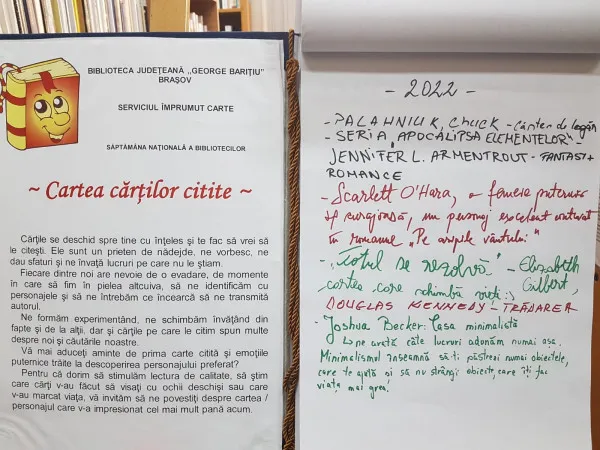 BIBLIOTECA JUDEŢEANĂ ,,GEORGE BARIŢIU"
BRAŞOV
SERVICIUL ÎMPRUMUT CARTE
SĂPTĂMÂNA NAŢIONALĂ A BIBLIOTECILOR
~ Cartea cărţilor citite ~
Cărţile se deschid spre tine cu înţeles şi te fac să vrei să
le citeşti. Ele sunt un prieten de nădejde, ne vorbesc, ne
dau sfaturi şi ne învaţă lucruri pe care nu le ştiam.
Fiecare dintre noi are nevoie de o evadare, de momente
în care să fim în pielea altcuiva, să ne identificăm cu
personajele şi să ne întrebăm ce încearcă să ne transmită
autorul.
Ne formăm experimentând, ne schimbăm învăţând din
fapte şi de la alţii, dar şi cărţile pe care le citim spun multe
despre noi şi căutările noastre.
Vă mai aduceţi aminte de prima carte citită şi emoţiile
puternice trăite la descoperirea personajului preferat?
Pentru că dorim să stimulăm lectura de calitate, să ştim
care cărţi v-au făcut să visaţi cu ochii deschişi sau care
v-au marcat viaţa, vă invităm să ne povestiţi despre cartea /
personajul care v-a impresionat cel mai mult pană acum.
- 2022 -
- PALAHNIUK, Chuck - Cântec de leagăn
- SERIA „APOCALIPSA ELEMENTELOR"
JENNIFER L. ARMENTROUT - FANTASY +
ROMANCE
- Scarlett O'Hara, o femeie puternică
și curajoasă, un personaj excelent conturat
în romanul „Pe aripile vântului"
- „Totul se rezolvă" - Elizabeth
Gilbert,
cartea care schimbă vieți :)
DOUGLAS KENNEDY - TRĂDAREA
- Joshua Becker: Casa minimalistă
Ne arată câte lucruri adunăm numai așa.
Minimalismul înseamnă să-ți păstrezi numai obiectele,
care te ajută și să nu strângi obiecte, care îți fac
viața mai grea!